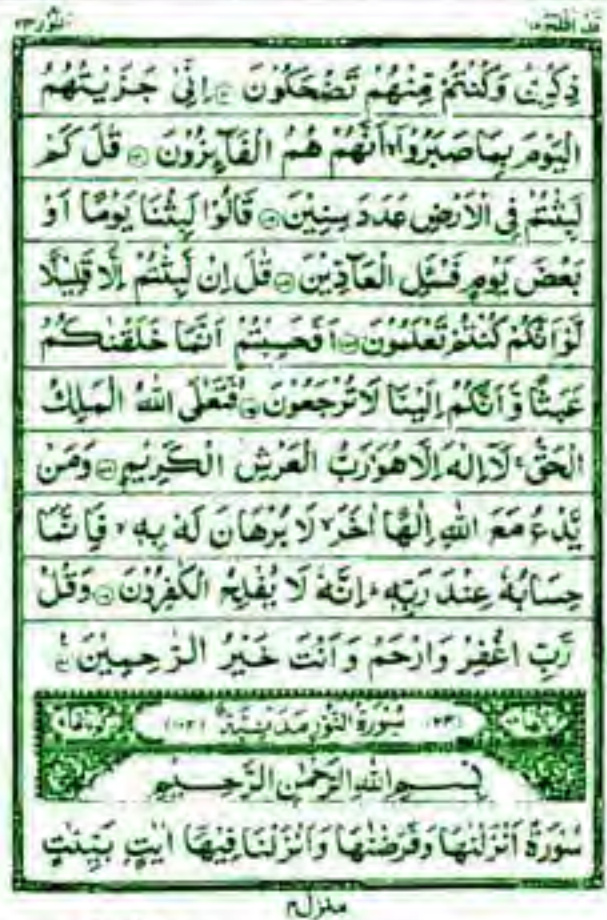 النور ٢٣
قد افلح ١٨
ذِكْرِیْ وَكُنْتُمْ مِّنْهُمْ تَضْحَكُوْنَ اِنِّیْ جَزَیْتُهُمُ
الْیَوْمَ بِمَا صَبَرُوْۤا اَنَّهُمْ هُمُ الْفَآىِٕزُوْنَ قٰلَ كَمْ
لَبِثْتُمْ فِی الْاَرْضِ عَدَدَ سِنِیْنَ قَالُوْا لَبِثْنَا یَوْمًا اَوْ
بَعْضَ یَوْمٍ فَسْـَٔلِ الْعَآدِّیْنَ قٰلَ اِنْ لَّبِثْتُمْ اِلَّا قَلِیْلًا
لَّوْ اَنَّكُمْ كُنْتُمْ تَعْلَمُوْنَ اَفَحَسِبْتُمْ اَنَّمَا خَلَقْنٰكُمْ
عَبَثًا وَّ اَنَّكُمْ اِلَیْنَا لَا تُرْجَعُوْنَ فَتَعٰلَی اللّٰهُ الْمَلِكُ
الْحَقُّ ۚ لَاۤ اِلٰهَ اِلَّا هُوَ ۚ رَبُّ الْعَرْشِ الْكَرِیْمِ وَمَنْ
یَّدْعُ مَعَ اللّٰهِ اِلٰهًا اٰخَرَ ۙ لَا بُرْهَانَ لَهٗ بِهٖ ۙ فَاِنَّمَا
حِسَابُهٗ عِنْدَ رَبِّهٖ ؕ اِنَّهٗ لَا یُفْلِحُ الْكٰفِرُوْنَ وَقُلْ
رَّبِّ اغْفِرْ وَارْحَمْ وَاَنْتَ خَیْرُ الرّٰحِمِیْنَ
(٢٤) سُوْرَةُ النُّوْرِ مَدَنِیَّةٌ (١٠٢)
بِسْمِ اللّٰهِ الرَّحْمٰنِ الرَّحِیْمِ
سُوْرَةٌ اَنْزَلْنٰهَا وَفَرَضْنٰهَا وَاَنْزَلْنَا فِیْهَاۤ اٰیٰتٍۭ بَیِّنٰتٍ
منزل ٤